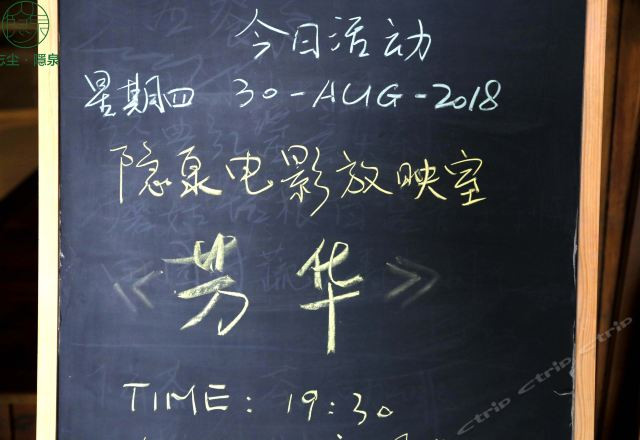 今日活动
星期四 30-AUG-2018
隐泉电影放映室
《芳华》
TIME: 19:30
尘·隐泉
ctrip ctrip ctrip